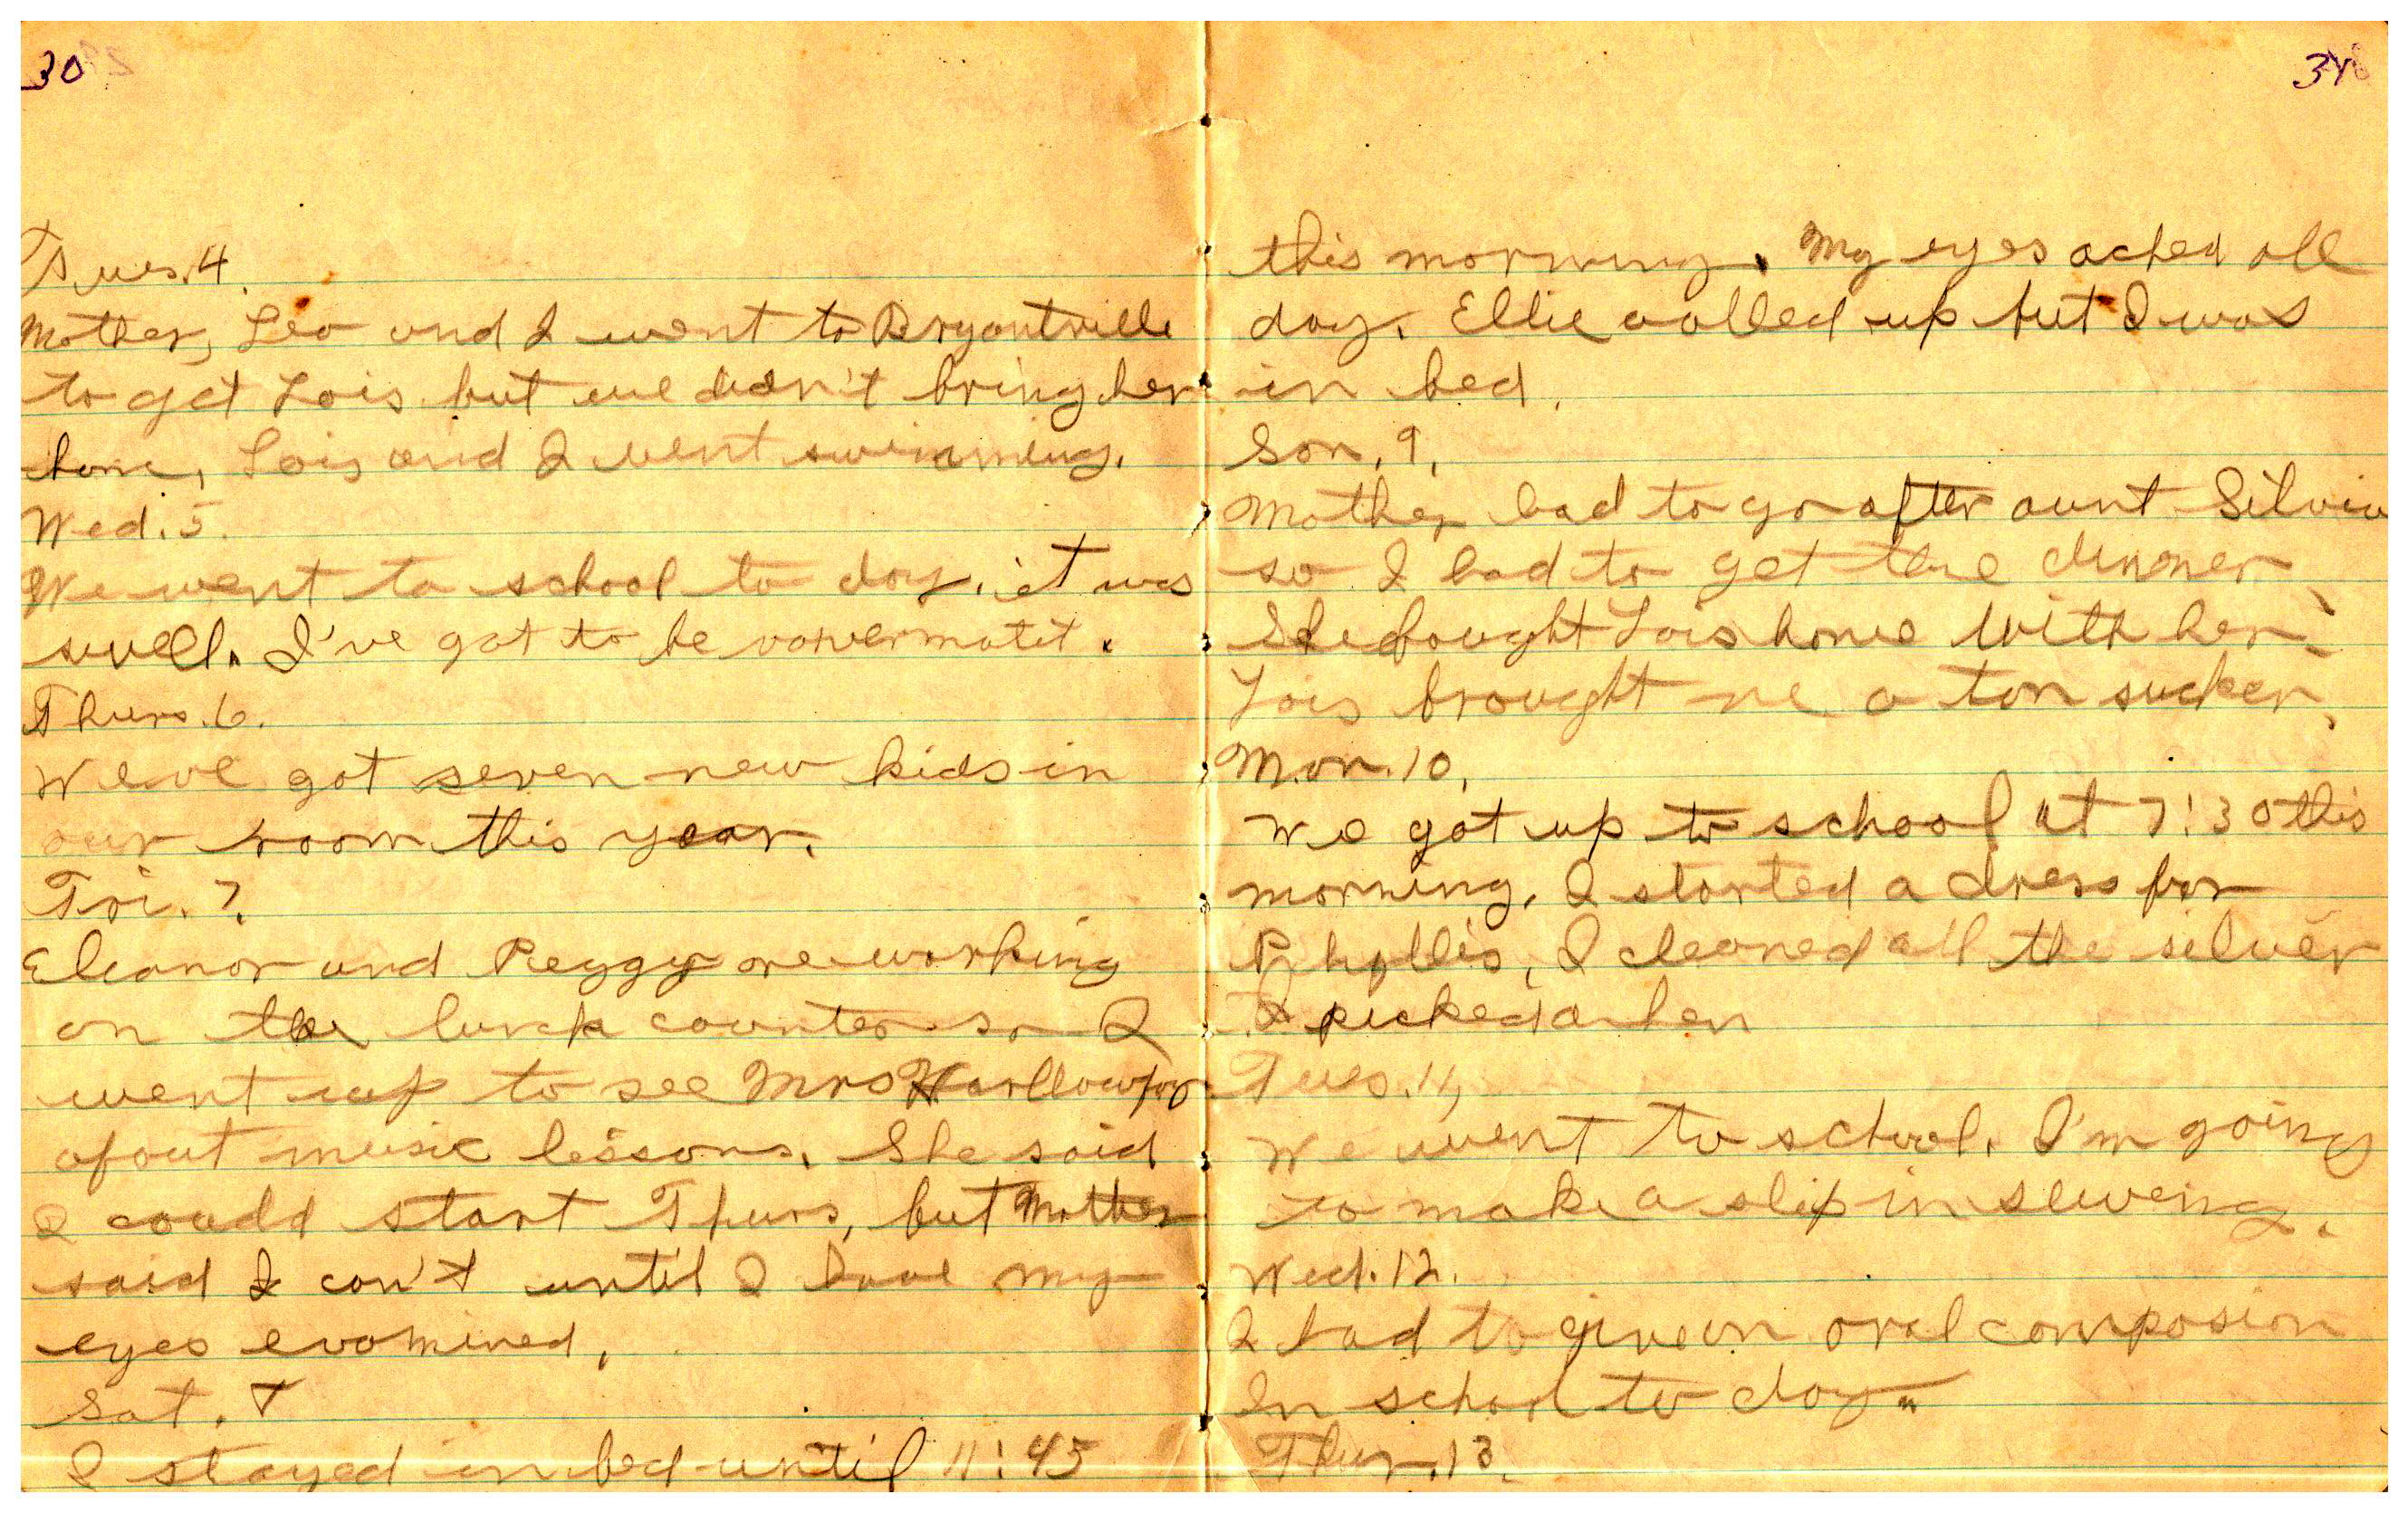 30
Tues. 4.
Mother, Leo and I went to Bryantville
to get Lois but we didn't bring her
home, Lois and I went swimming.
Wed. 5.
We went to school to day. it was
swell. I've got to be
Thurs. 6.
Weve got seven new kids in
our room this year.
Fri. 7.
Eleanor and Peggy are working
on the lunch counter so I
went up to see Mrs Harllow for
about music lessons. She said
I could start Thurs, but Mother
said I can't until I have my
eyes examined,
Sat. 8
I stayed in bed until 11:45
34
this morning. My eyes ached all
day. Ellie called up but I was
in bed.
Son. 9.
Mother had to go after aunt Silvia
so I had to get the dinner
She bought Lois home with her.
Lois brought me a ton sucker.
Mon. 10.
We got up to school at 7:30 this
morning. I started a dress for
Phyllis, I cleaned all the silver
I picked a hen
Tues. 11,
We went to school. I'm going
to make a slip in sewing.
Wed. 12.
I had to give an oral composion
In school to day.
Thur. 13.